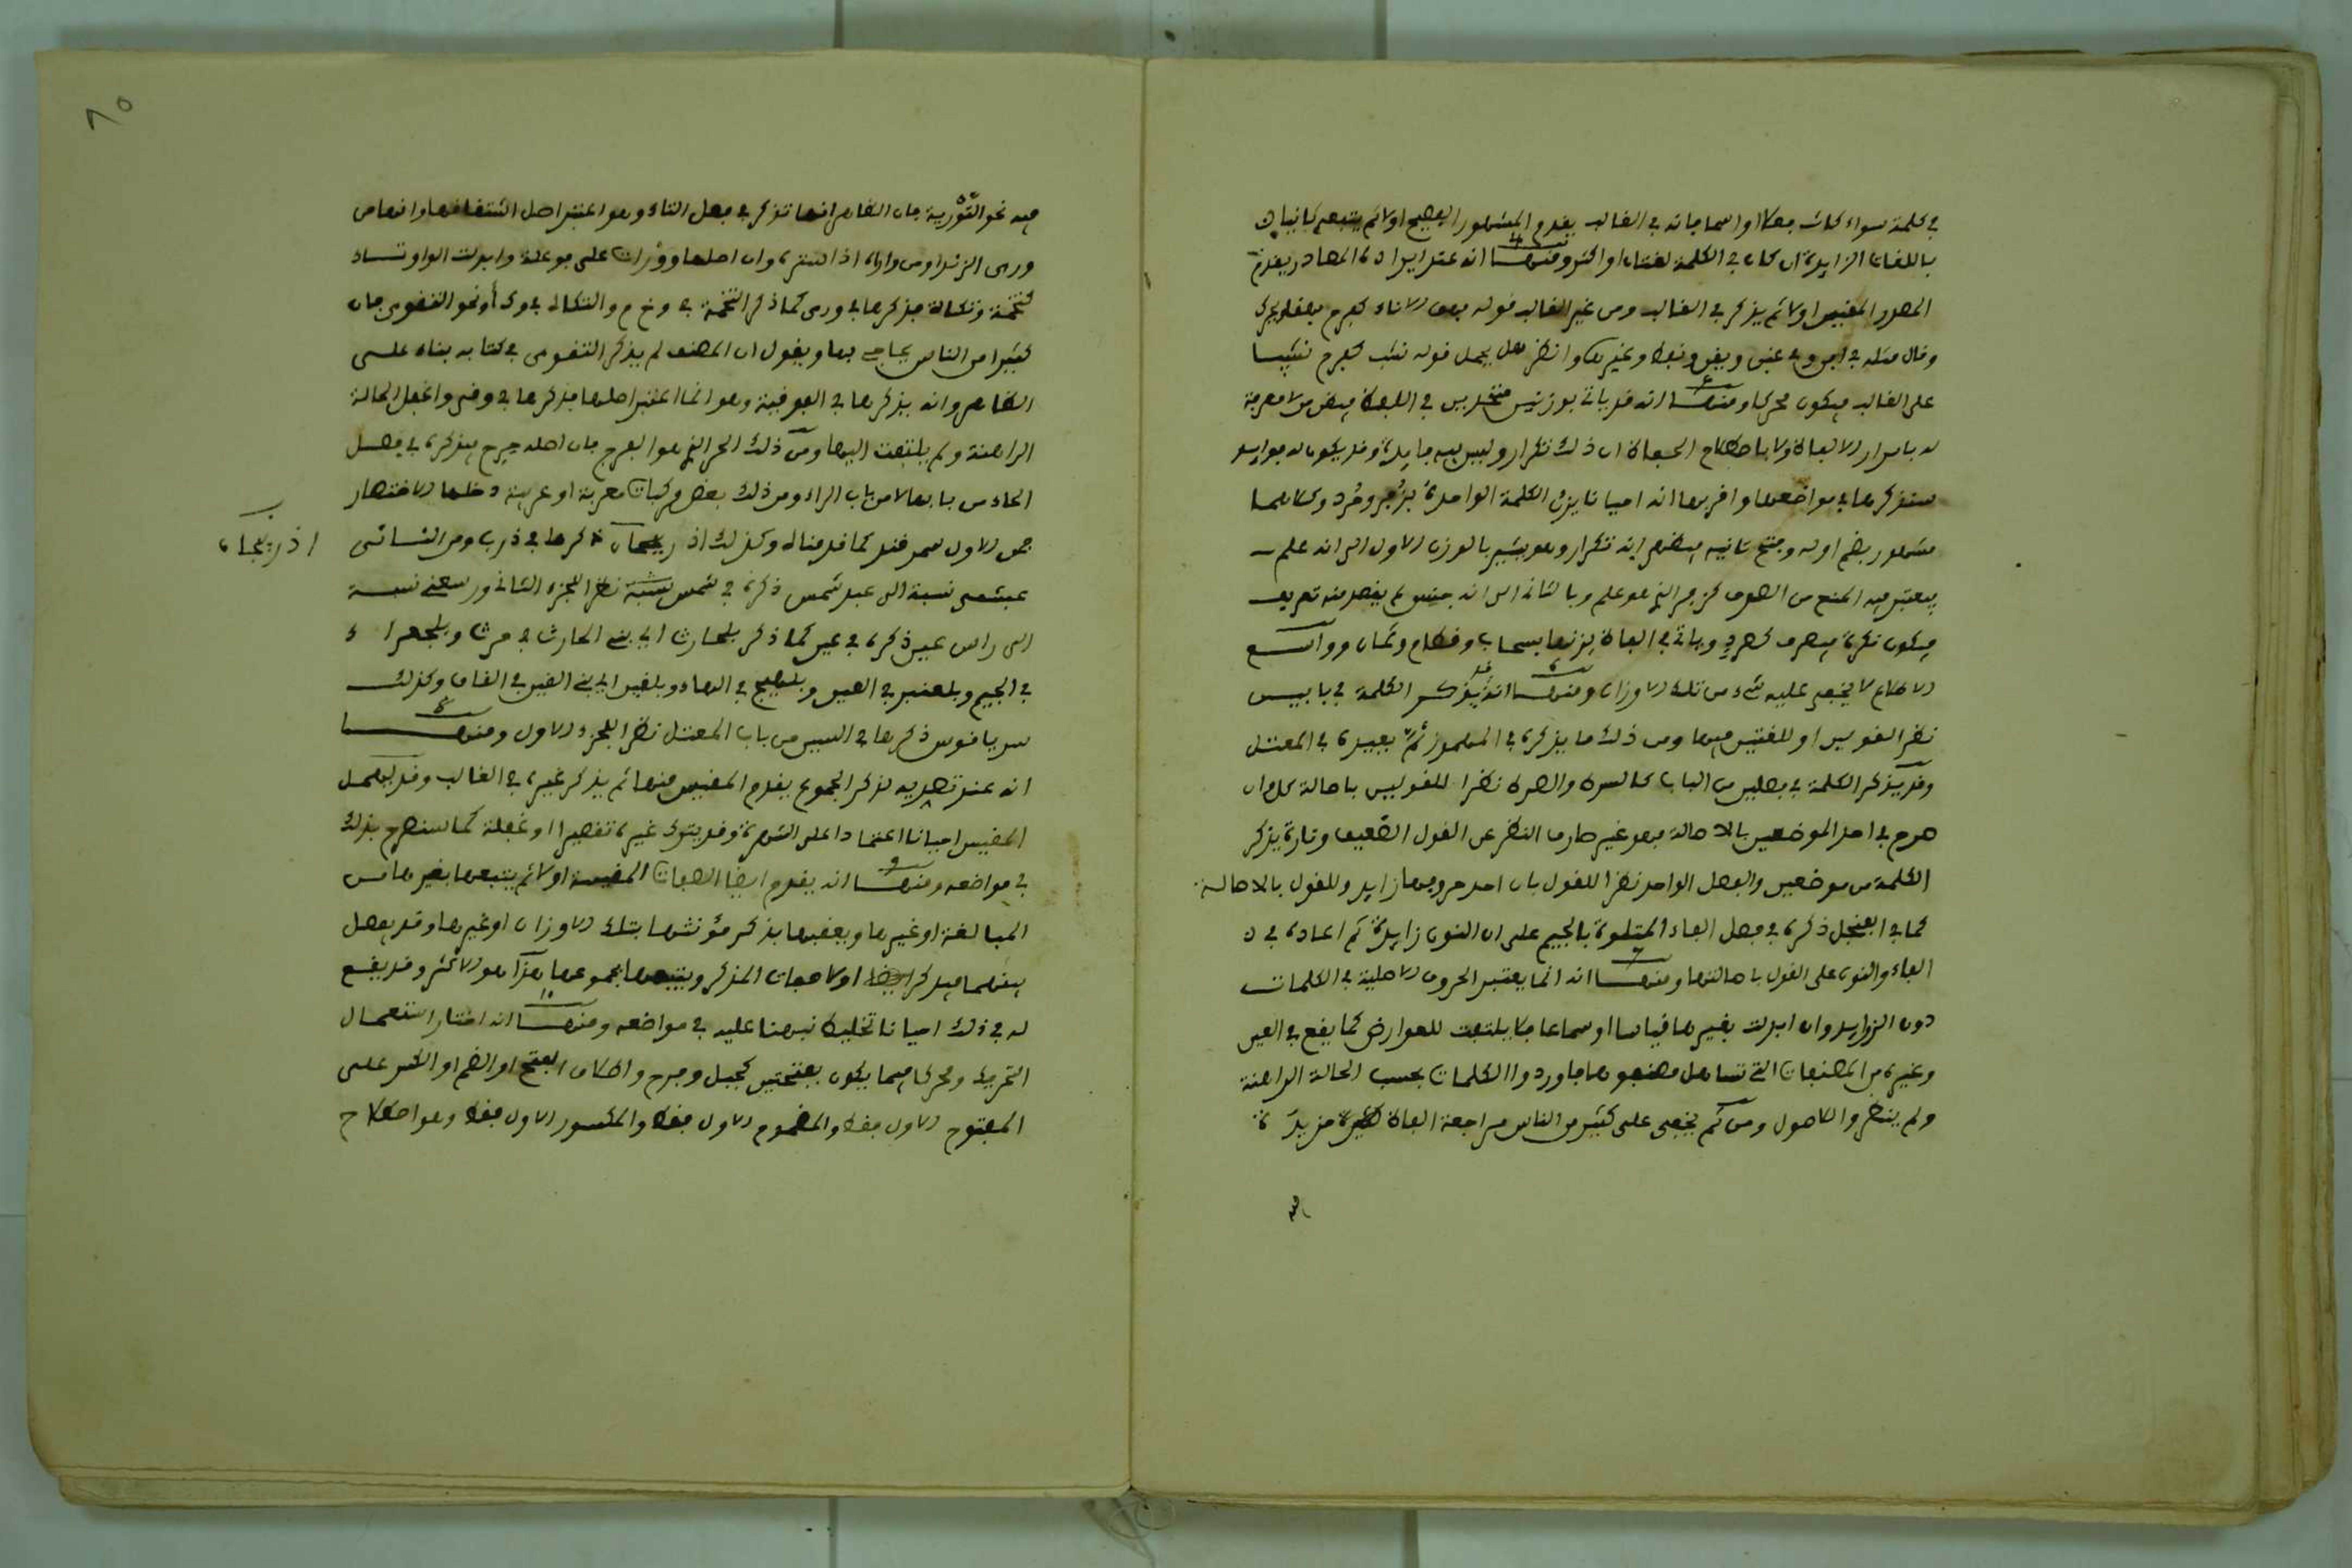 في كلمة سواء كانت فعلا او اسما فانه في الغالب يقدم المشهور الفصيح اولا ثم يتبعه ثانيا
باللغات الزايدة ان كان في الكلمة لغتان او اكثر ومنها انه عند ايراده المصادر يقدم
المصدر المقيس اولا ثم يذكر في الغالب ومن غير الغالب قوله الاناء كفرح
وقال مثله في وانظر هل يحمل قوله نشب كفرح
على الغالب فيكون محركا ومنها انه قد ياتي بوزنين متحدين في اللفظ فيظن من لا معرفة
له باسرار الالفاظ ولا باصطلاح الحفاظ ان ذلك تكرار وليس فيه فايدة وقد يكون له فوايد
ستذكرها في مواضعها واقربها انه احيانا يزن الكلمة الواحدة بزفر وصرد وكلاهما
مشهور بضم اوله وفتح ثانيه فيظهر انه تكرار وهو يشير بالوزن الاول الى انه علم
فيعتبر فيه المنع من الصرف كزفر الذي هو علم وبالثاني الى انه جنس لم يقصد منه تعريف
فيكون نكرة فيصرف كصرد وياتي في الفاظ يزنها بسحاب وقطام وثمان وواسع
الاطلاع لا يخفى عليه شيء من تلك الاوزان ومنها انه قد يذكر الكلمة في بابين
نظرا لقولين او للغتين فيها ومن ذلك ما يذكره في المهموز ثم يعيده في المعتل
وقد يذكر الكلمة في فصلين من الباب نظرا للقولين باصالة كل وان
صرح في احد الموضعين بالاصالة فهو غير صارف النظر عن القول الضعيف وتارة يذكر
الكلمة من موضعين والفصل الواحد نظرا للقول بان احد حروفها زايد وللقول بالاصالة
كما في العفنجل ذكره في فصل الفاء المتلوة بالجيم على ان النون زايدة ثم اعاده في
الفاء والنون على القول باصالتها ومنها انه انما يعتبر الحروف الاصلية في الكلمات
دون الزوايد وان ابدلت بغيرها قياسا او سماعا فلا يلتفت للعوارض كما يقع في العين
وغيره من المصنفات التي تساهل مصنفوها فاوردوا الكلمات بحسب الحالة الراهنة
ولم ينظروا للاصول ومن ثم يخفى على كثير من الناس مراجعة الفاظ كثيرة مزيدة
فيه
فيه نحو التورية فان الظاهر انها تذكر في فصل التاء وهو اعتبر اصل اشتقاقها وانها من
ورى الزند او من واراه اذا ستره وان اصلها وورات على فوعلة وابدلت الواو تاء
كتخمة وتكلة فذكرها في ورى كما ذكر التخمة في وخم والتكلة في وكأ ونحو التقوى فان
كثيرا من الناس يحاجي بها ويقول ان المصنف لم يذكر التقوى في كتابه بناء على
الظاهر وانه يذكرها في الفوقية وهو انما اعتبر اصلها فذكرها في وقى واغفل الحالة
الراهنة ولم يلتفت اليها ومن ذلك الحر الذي هو الفرج فان اصله حرح فيذكره في فصل
الحاء من بابها لا من باب الراء ومن ذلك بعض مركبات معربة او عربية دخلها الاختصار
فمن الاول كما قد مثاله وكذلك اذربيجان ذكرها في ذرب ومن الثاني
اذربيجان
عبشمي نسبة الى عبد شمس ذكره في شمس نظرا للجزء الثاني ورسعني نسبة
الى راس عين ذكره في عين كما ذكر بلحارث اي بني الحارث في حرث وبلجهراء
في الجيم وبلعنبر في العين في الهاء وبلقين اي بني القين في القاف وكذلك
سريافوس ذكرها في السين من باب المعتل نظرا للجزء الاول ومنها
انه عند تصديه لذكر الجموع يقدم المقيس منها ثم يذكر غيره في الغالب وقد يهمل
المقيس احيانا اعتمادا على الشهرة وقد يترك غيره تقصيرا او غفلة كما سنصرح بذلك
في مواضعه ومنها انه يقدم ايضا الصفات المقيسة اولا ثم يتبعها بغيرها من
المبالغة او غيرها ويعقبها بذكر مؤنثها بتلك الاوزان او غيرها وقد يفصل
بينهما فيذكر اولا صفات المذكر ويتبعها بجموعها هذا هو الاكثر وقد يقع
له في ذلك احيانا تخليط نبهنا عليه في مواضعه ومنها انه اختار استعمال
التحريك ومحركا فيما يكون بفتحتين كجبل وفرح واطلاق الفتح او الضم او الكسر على
المفتوح الاول فقط والمضموم الاول فقط والمكسور الاول فقط وهو اصطلاح